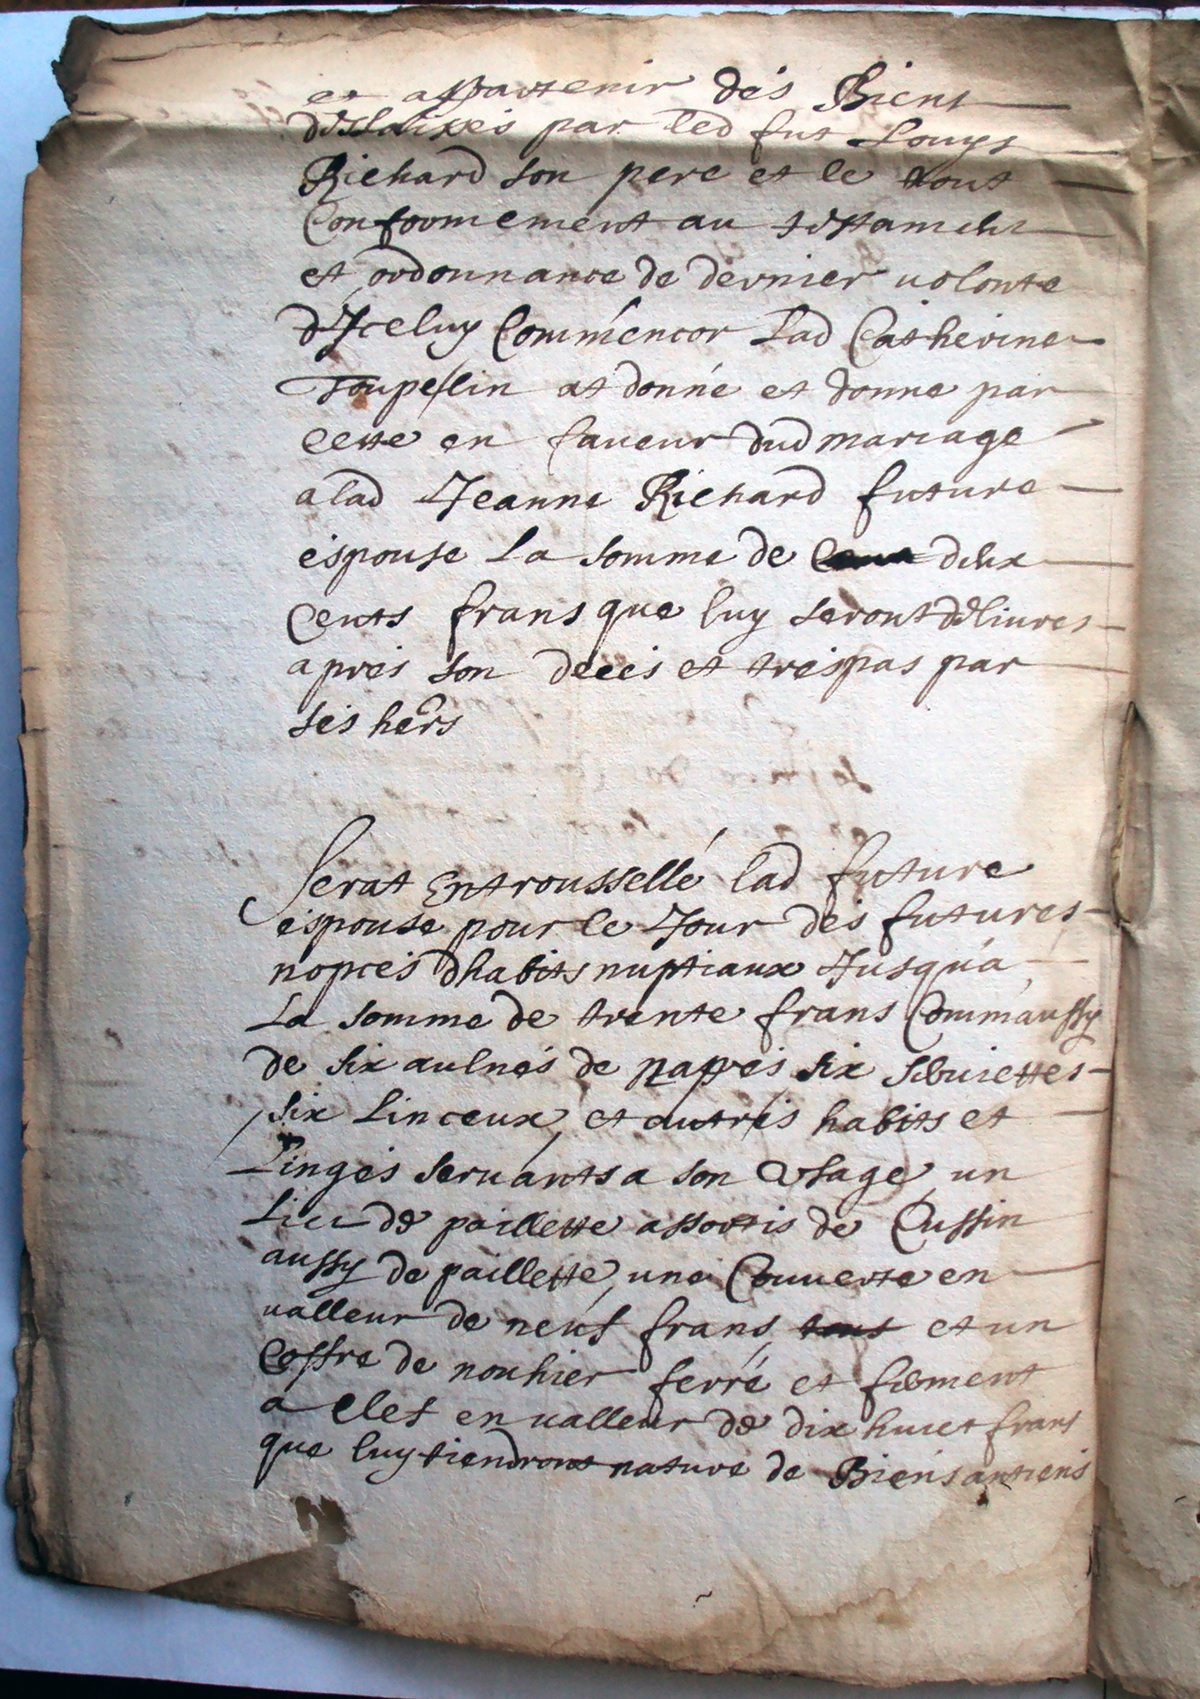 et appartenir des Biens
delaixes par led fut Louys
Richard son pere et le tout
Conformement au testament
et ordonnance de dernier volonte
d'Iceluy Commencor Lad Catherine
Toupelin at donné et donne par
cette en faueur dud mariage
a lad Jeanne Richard future
espouse La somme de deux
Cents frans que luy seront deliures
apres son deces et trespas par
ses hers
Serat Entroussellé lad future
espouse pour le Jour des futures
nopces dhabits nuptiaux Jusqu'a
La somme de trente frans Comm'aussy
de six aulnes de nappes six seruiettes
six Linceux, et autres habits et
Linges seruants a son Vsage, un
Lict de paillette assortis de Cussin
aussy de paillette, une Couuerte en
valleur de neuf frans et un
Coffre de nouhier ferré et ferment
a clef en valleur de dix huict frans
que luy tiendront nature de Biens antiens